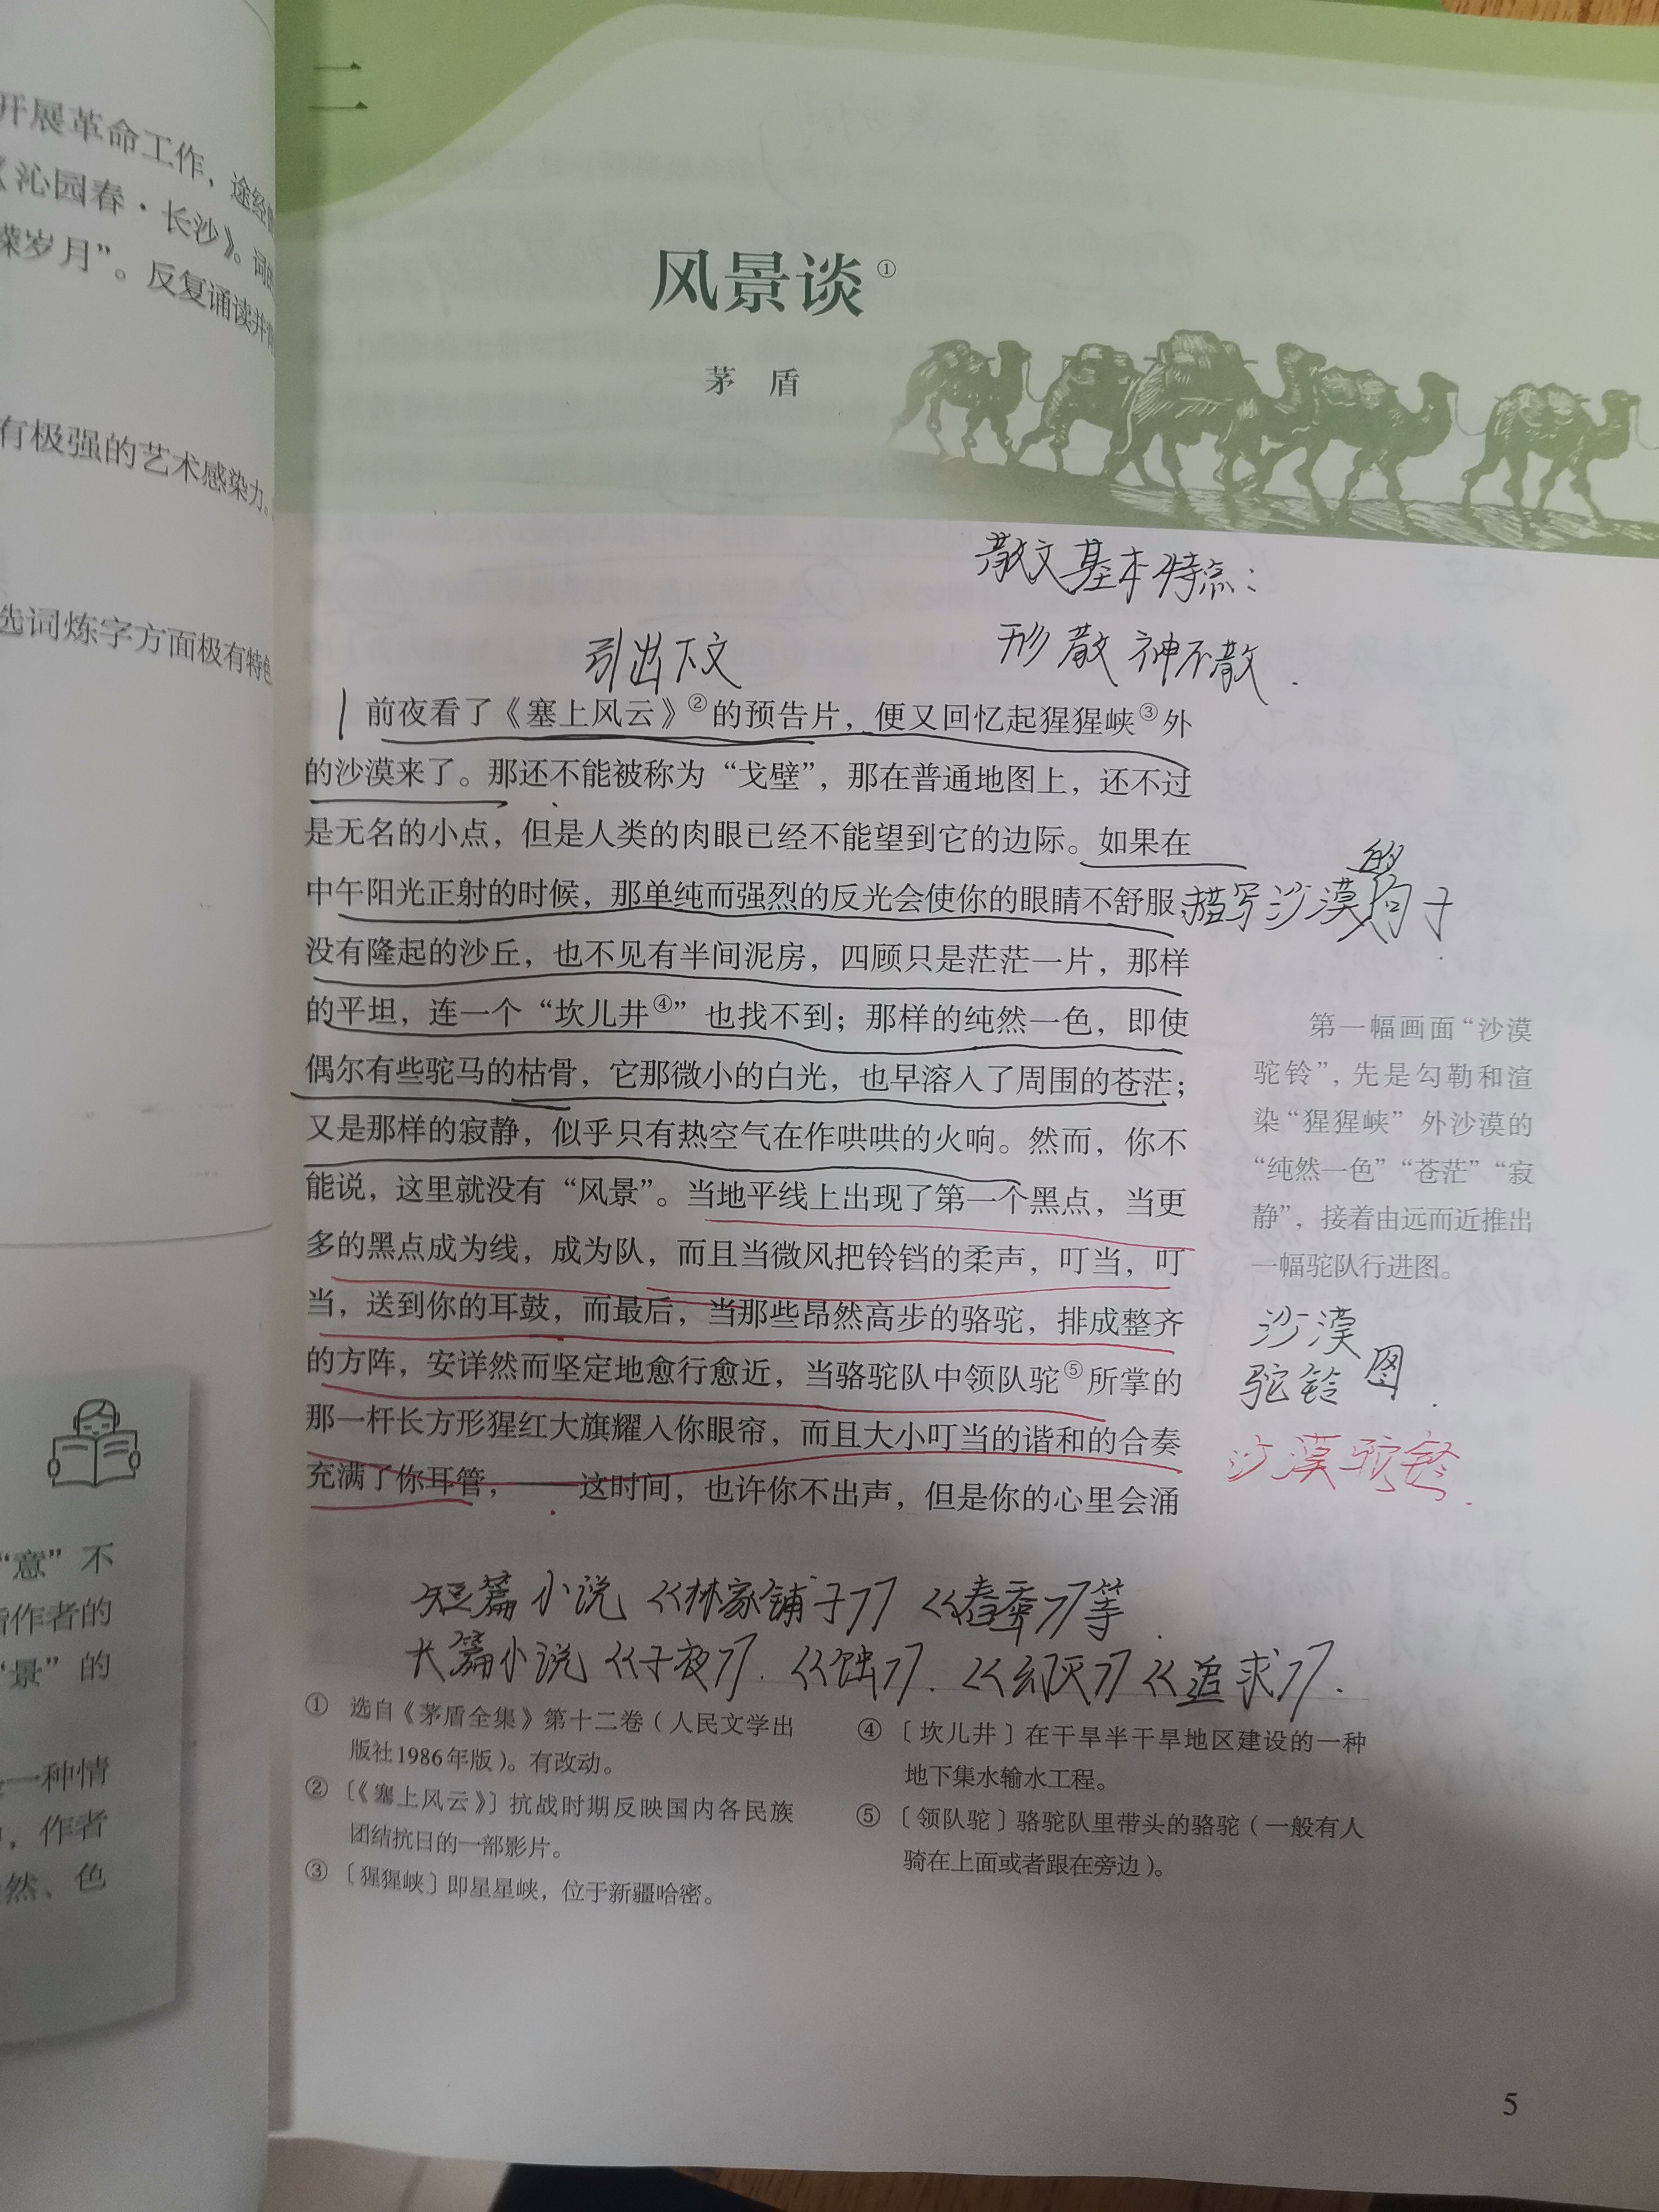 开展革命工作，途经
《沁园春·长沙》。词
嵘岁月”。反复诵读并
有极强的艺术感染力。
选词炼字方面极有特色
“意”不
作者的
“景”的
一种情
，作者
然、色
二
风景谈①
茅 盾
散文基本特点：
形散 神不散.
引出下文
1 前夜看了《塞上风云》②的预告片，便又回忆起猩猩峡③外
的沙漠来了。那还不能被称为“戈壁”，那在普通地图上，还不过
是无名的小点，但是人类的肉眼已经不能望到它的边际。如果在
中午阳光正射的时候，那单纯而强烈的反光会使你的眼睛不舒服；
描写沙漠的句子.
没有隆起的沙丘，也不见有半间泥房，四顾只是茫茫一片，那样
的平坦，连一个“坎儿井④”也找不到；那样的纯然一色，即使
偶尔有些驼马的枯骨，它那微小的白光，也早溶入了周围的苍茫；
又是那样的寂静，似乎只有热空气在作哄哄的火响。然而，你不
能说，这里就没有“风景”。当地平线上出现了第一个黑点，当更
多的黑点成为线，成为队，而且当微风把铃铛的柔声，叮当，叮
当，送到你的耳鼓，而最后，当那些昂然高步的骆驼，排成整齐
的方阵，安详然而坚定地愈行愈近，当骆驼队中领队驼⑤所掌的
那一杆长方形猩红大旗耀入你眼帘，而且大小叮当的谐和的合奏
充满了你耳管，——这时间，也许你不出声，但是你的心里会涌
第一幅画面“沙漠
驼铃”，先是勾勒和渲
染“猩猩峡”外沙漠的
“纯然一色”“苍茫”“寂
静”，接着由远而近推出
一幅驼队行进图。
沙漠
驼铃 图.
沙漠驼铃.
短篇小说《林家铺子》《春蚕》等.
长篇小说《子夜》.《蚀》.《幻灭》《追求》.
① 选自《茅盾全集》第十二卷（人民文学出
版社1986年版）。有改动。
② 〔《塞上风云》〕抗战时期反映国内各民族
团结抗日的一部影片。
③ 〔猩猩峡〕即星星峡，位于新疆哈密。
④ 〔坎儿井〕在干旱半干旱地区建设的一种
地下集水输水工程。
⑤ 〔领队驼〕骆驼队里带头的骆驼（一般有人
骑在上面或者跟在旁边）。
5